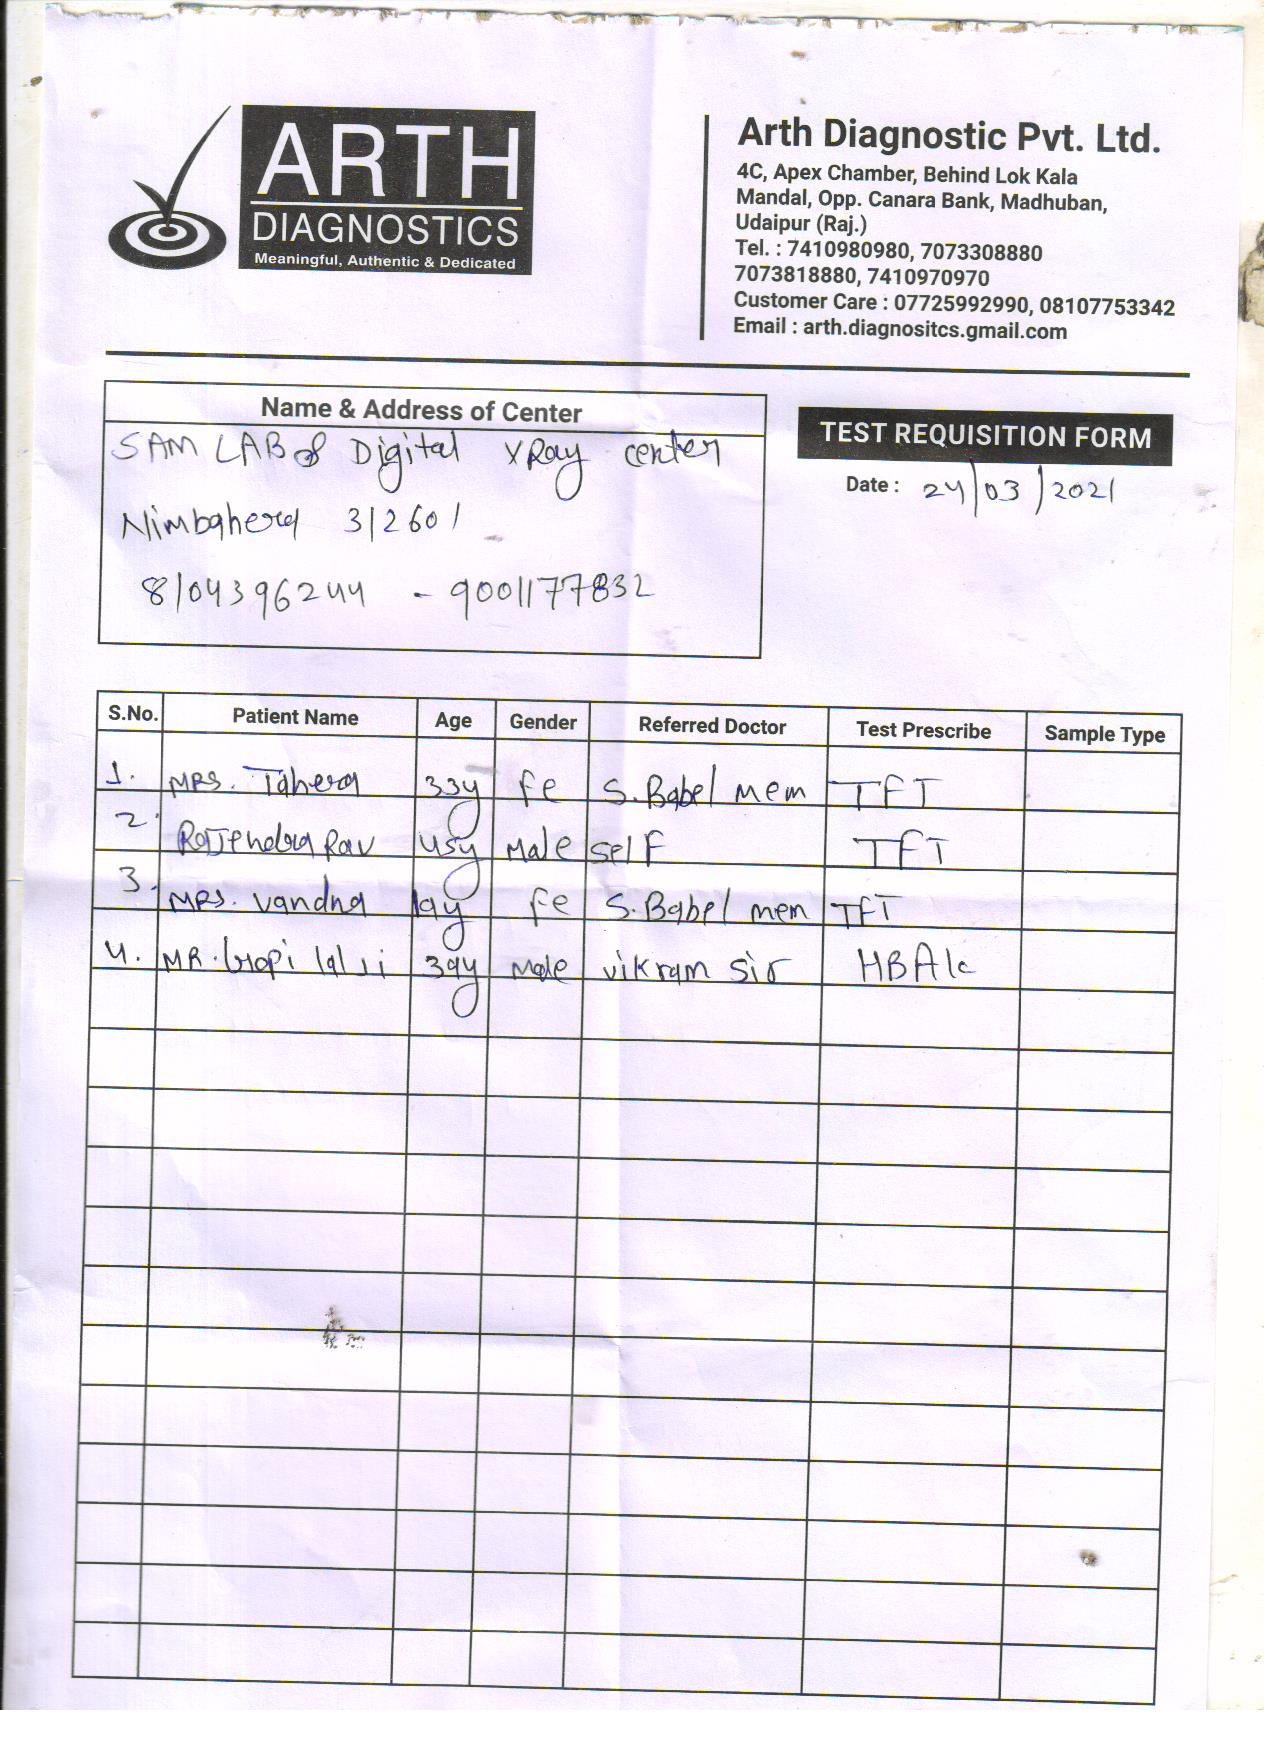 ARTH
DIAGNOSTICS
Meaningful, Authentic & Dedicated
Arth Diagnostic Pvt. Ltd.
4C, Apex Chamber, Behind Lok Kala
Mandal, Opp. Canara Bank, Madhuban,
Udaipur (Raj.)
Tel. : 7410980980, 7073308880
7073818880, 7410970970
Customer Care : 07725992990, 08107753342
Email : arth.diagnositcs.gmail.com
Name & Address of Center
SAM LAB & Digital XRay center
Nimbahera 312601
8104396244 - 9001177832
TEST REQUISITION FORM
Date : 24/03/2021
S.No. Patient Name Age Gender Referred Doctor Test Prescribe Sample Type
1. MRS. Tahera 33y fe S. Babel mem TFT
2. Rajendra Rav 45y Male self TFT
3. MRS. Vandna 19y fe S. Babel mem TFT
4. MR. Gopi lal ji 39y Male vikram sir HBA1c